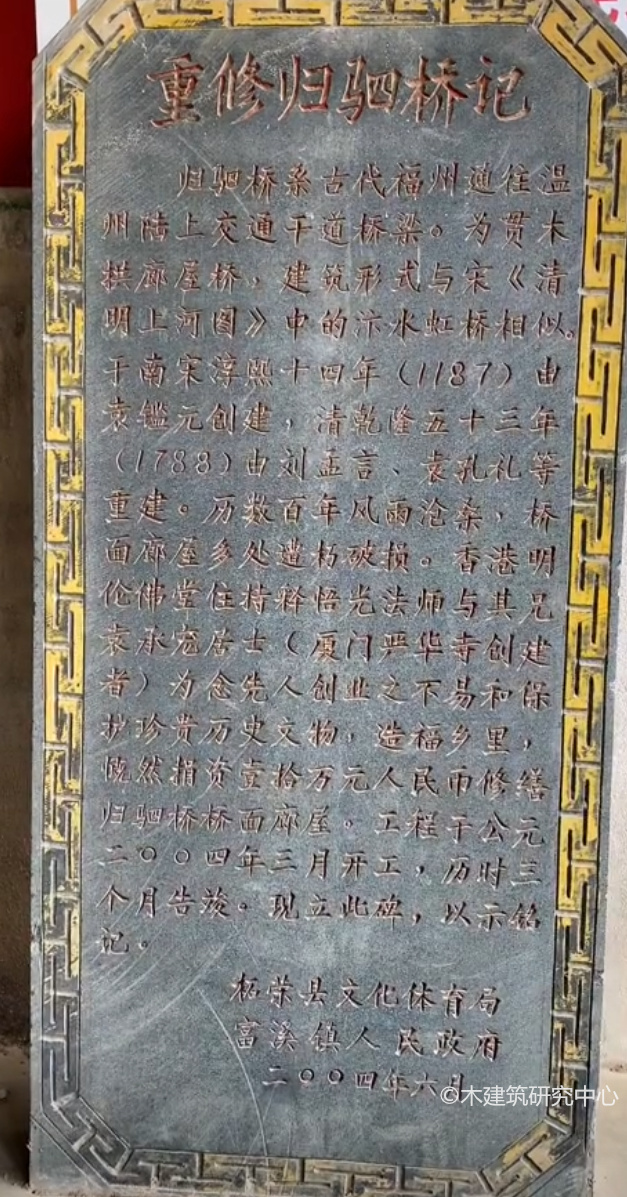 重修归驷桥记
归驷桥系古代福州通往温
州陆上交通干道桥梁。为贯木
拱廊屋桥，建筑形式与宋《清
明上河图》中的汴水虹桥相似。
于南宋淳熙十四年（1187）由
袁鑑元创建，清乾隆五十三年
（1788）由刘孟言、袁孔礼等
重建。历数百年风雨沧桑，桥
面廊屋多处遭朽破损。香港明
伦佛堂住持释悟光法师与其兄
袁承宠居士（厦门严华寺创建
者）为念先人创业之不易和保
护珍贵历史文物，造福乡里，
慨然捐资壹拾万元人民币修缮
归驷桥桥面廊屋。工程于公元
二〇〇四年三月开工，历时三
个月告竣。现立此碑，以示铭
记。
柘荣县文化体育局
富溪镇人民政府
二〇〇四年六月
©木建筑研究中心